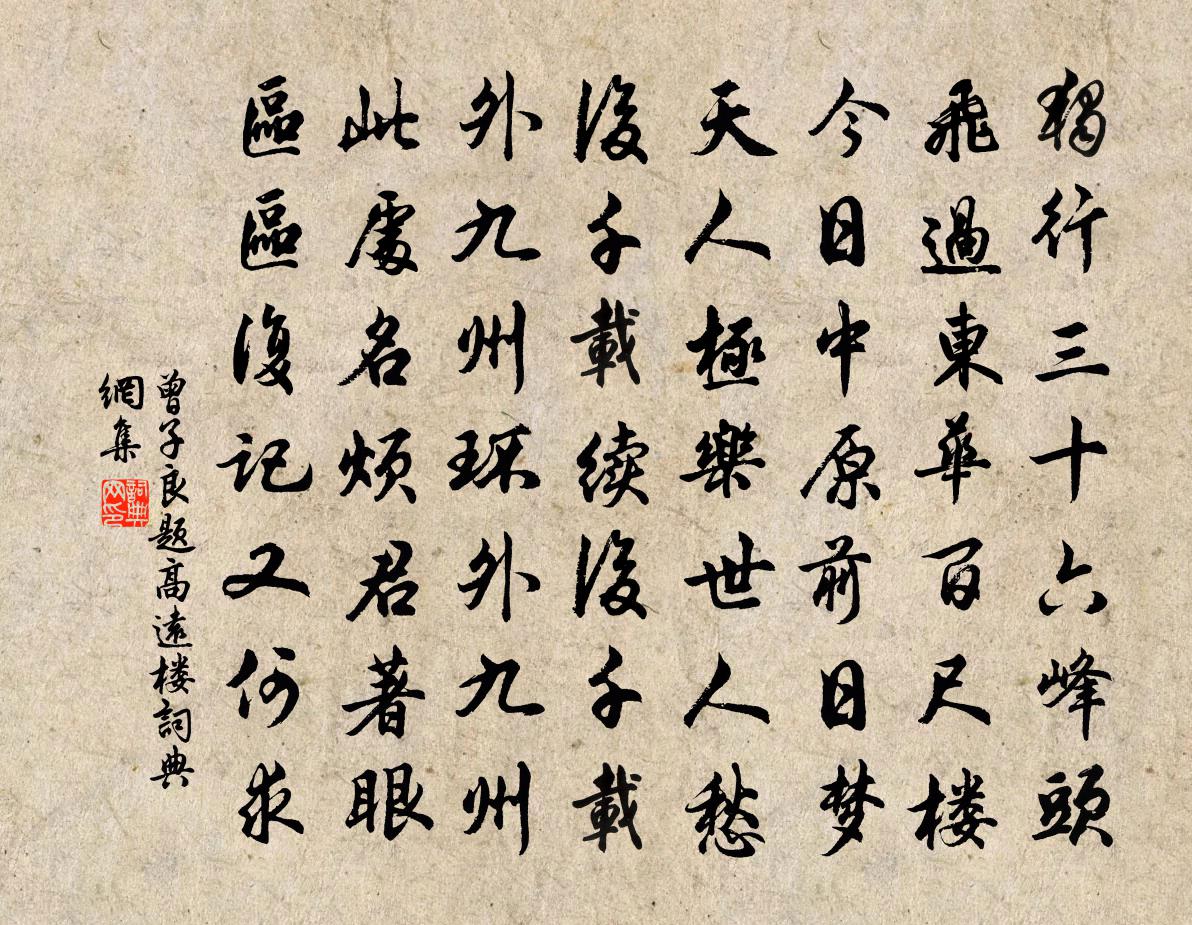 獨行三十六峰頭
飛過東華百尺楼
今日中原前日梦
天人極樂世人愁
後千載續後千載
外九州环外九州
此處名烦君著眼
區區復记又何求
曾子良题高遠楼詞典
網集
詞典网印